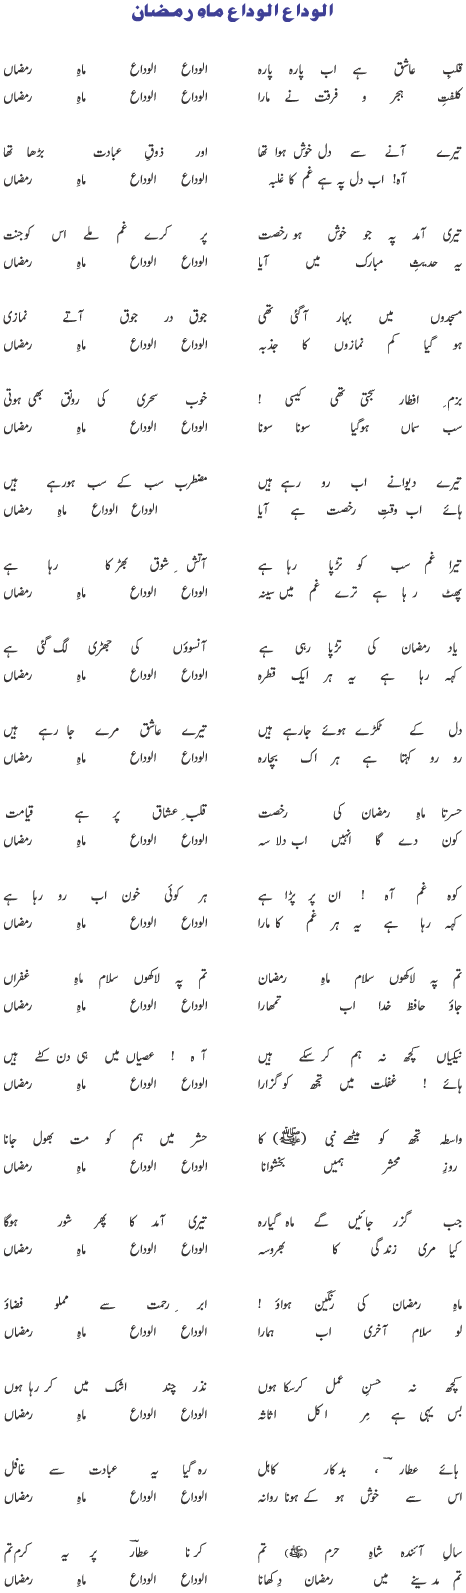 الوداع الوداع ماہِ رمضان
قلبِ عاشق ہے اب پارہ پارہ الوداع الوداع ماہِ رمضاں
کلفتِ ہجر و فرقت نے مارا الوداع الوداع ماہِ رمضاں
تیرے آنے سے دل خوش ہوا تھا اور ذوقِ عبادت بڑھا تھا
آہ! اب دل پہ ہے غم کا غلبہ الوداع الوداع ماہِ رمضاں
تیری آمد پہ جو خوش ہو رخصت پر کرے غم ملے اس کو جنت
یہ حدیثِ مبارک میں آیا الوداع الوداع ماہِ رمضاں
مسجدوں میں بہار آگئی تھی جوق در جوق آتے نمازی
ہو گیا کم نمازوں کا جذبہ الوداع الوداع ماہِ رمضاں
بزمِ افطار سجتی تھی کیسی ! خوب سحری کی رونق بھی ہوتی
سب سماں ہوگیا سونا سونا الوداع الوداع ماہِ رمضاں
تیرے دیوانے اب رو رہے ہیں مضطرب سب کے سب ہورہے ہیں
ہائے اب وقتِ رخصت ہے آیا الوداع الوداع ماہِ رمضاں
تیرا غم سب کو تڑپا رہا ہے آتشِ شوق بھڑکا رہا ہے
پھٹ رہا ہے ترے غم میں سینہ الوداع الوداع ماہِ رمضاں
یاد رمضان کی تڑپا رہی ہے آنسوؤں کی جھڑی لگ گئی ہے
کہہ رہا ہے یہ ہر ایک قطرہ الوداع الوداع ماہِ رمضاں
دل کے ٹکڑے ہوئے جارہے ہیں تیرے عاشق مرے جا رہے ہیں
رو رو کہتا ہے ہر اک بچارہ الوداع الوداع ماہِ رمضاں
حسرتا ماہِ رمضاں کی رخصت قلبِ عشاق پر ہے قیامت
کون دے گا انہیں اب دلاسہ الوداع الوداع ماہِ رمضاں
کوہ غم آہ ! ان پر پڑا ہے ہر کوئی خون اب رو رہا ہے
کہہ رہا ہے یہ ہر غم کا مارا الوداع الوداع ماہِ رمضاں
تم پہ لاکھوں سلام ماہِ رمضان تم پہ لاکھوں سلام ماہِ غفراں
جاؤ حافظ خدا اب تمھارا الوداع الوداع ماہِ رمضاں
نیکیاں کچھ نہ ہم کر سکے ہیں آہ ! عصیاں میں ہی دن کٹے ہیں
ہائے ! غفلت میں تجھ کو گزارا الوداع الوداع ماہِ رمضاں
واسطہ تجھ کو میٹھے نبی (ﷺ) کا حشر میں ہم کو مت بھول جانا
روزِ محشر ہمیں بخشوانا الوداع الوداع ماہِ رمضاں
جب گزر جائیں گے ماہ گیارہ تیری آمد کا پھر شور ہوگا
کیا مری زندگی کا بھروسہ الوداع الوداع ماہِ رمضاں
ماہِ رمضاں کی رنگین ہواؤ ! ابرِ رحمت سے مملو فضاؤ
لو سلام آخری اب ہمارا الوداع الوداع ماہِ رمضاں
کچھ نہ حسنِ عمل کرسکا ہوں نذر چند اشک میں کر رہا ہوں
بس یہی ہے مرا کل اثاثہ الوداع الوداع ماہِ رمضاں
ہائے عطار ، بدکار کاہل رہ گیا یہ عبادت سے غافل
اس سے خوش ہو کے ہونا روانہ الوداع الوداع ماہِ رمضاں
سالِ آئندہ شاہِ حرم (ﷺ) تم کرنا عطار پر یہ کرم تم
تم مدینے میں رمضاں دِکھانا الوداع الوداع ماہِ رمضاں